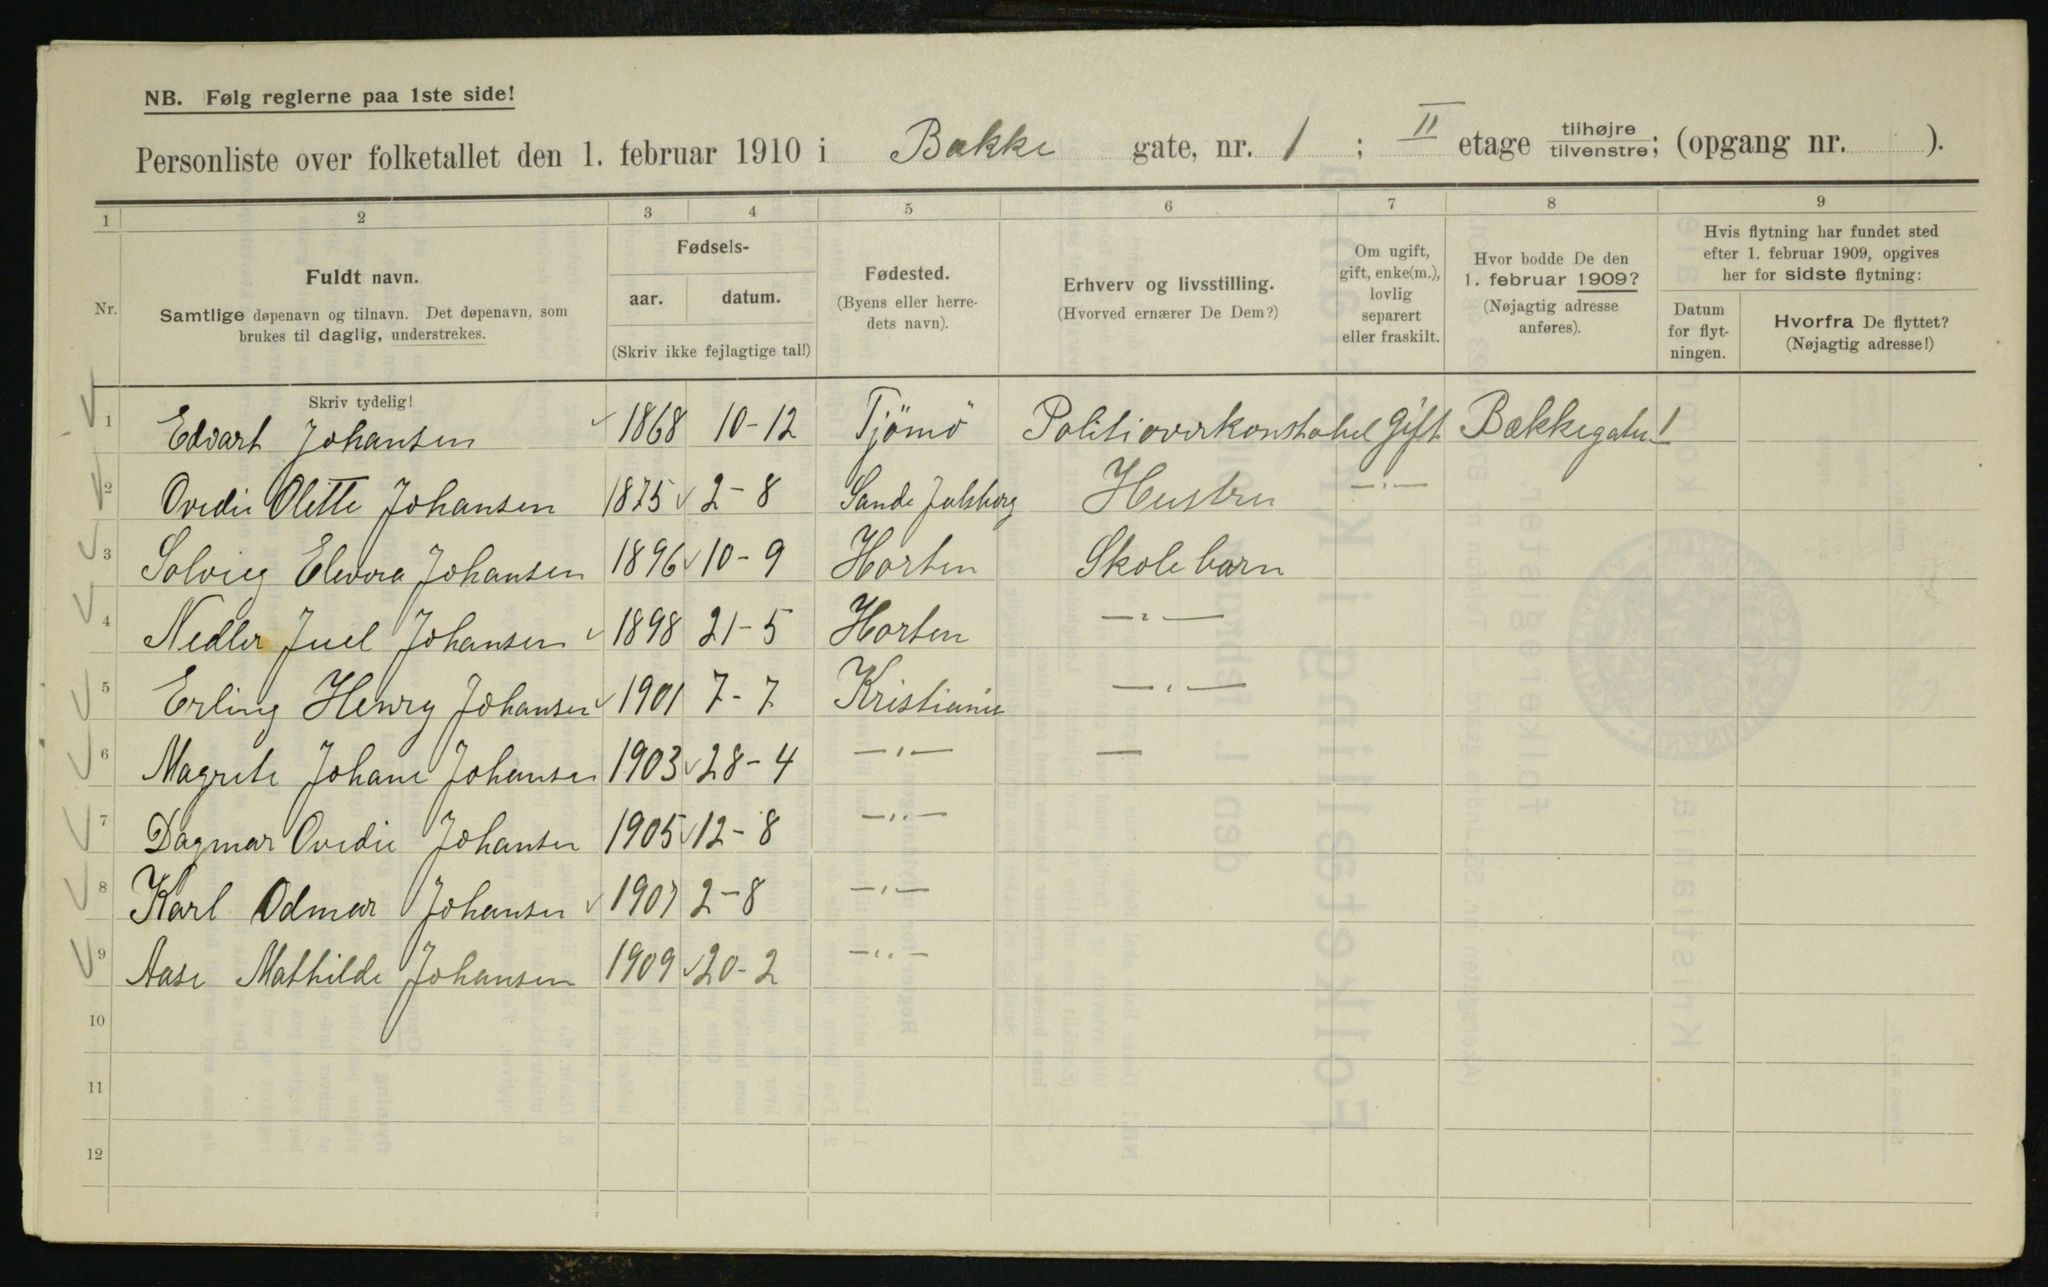 NB. Følg reglerne paa 1ste side!
Personliste over folketallet den 1. februar 1910 i Bakke gate, nr. 1 ; II etage tilhøjre tilvenstre; (opgang nr. ).
1 2 3 4 5 6 7 8 9
Nr.
Fuldt navn.
Samtlige døpenavn og tilnavn. Det døpenavn, som
brukes til daglig, understrekes.
Fødsels-
aar. datum.
(Skriv ikke fejlagtige tal!)
Fødested.
(Byens eller herre-
dets navn).
Erhverv og livsstilling.
(Hvorved ernærer De Dem?)
Om ugift,
gift, enke(m.),
lovlig
separert
eller fraskilt.
Hvor bodde De den
1. februar 1909?
(Nøjagtig adresse
anføres).
Hvis flytning har fundet sted
efter 1. februar 1909, opgives
her for sidste flytning:
Datum
for flyt-
ningen.
Hvorfra De flyttet?
(Nøjagtig adresse!)
Skriv tydelig!
1 Edvart Johansen 1868 10-12 Tjömö Politioverkonstabel Gift Bakkegaten 1
2 Ovedie Olette Johansen 1875 2-8 Sande Hustru -"-
3 Solvieg Elevora Johansen 1896 10-9 Horten Skolebarn
4 Nedler Juel Johansen 1898 21-5 Horten -"-
5 Erling Henry Johansen 1901 7-7 Kristiania -"-
6 Magrete Johane Johansen 1903 28-4 -"- —
7 Dagmar Ovedie Johansen 1905 12-8 -"-
8 Karl Odmar Johansen 1907 2-8 -"-
9 Aase Mathilde Johansen 1909 20-2 -"-
10
11
12